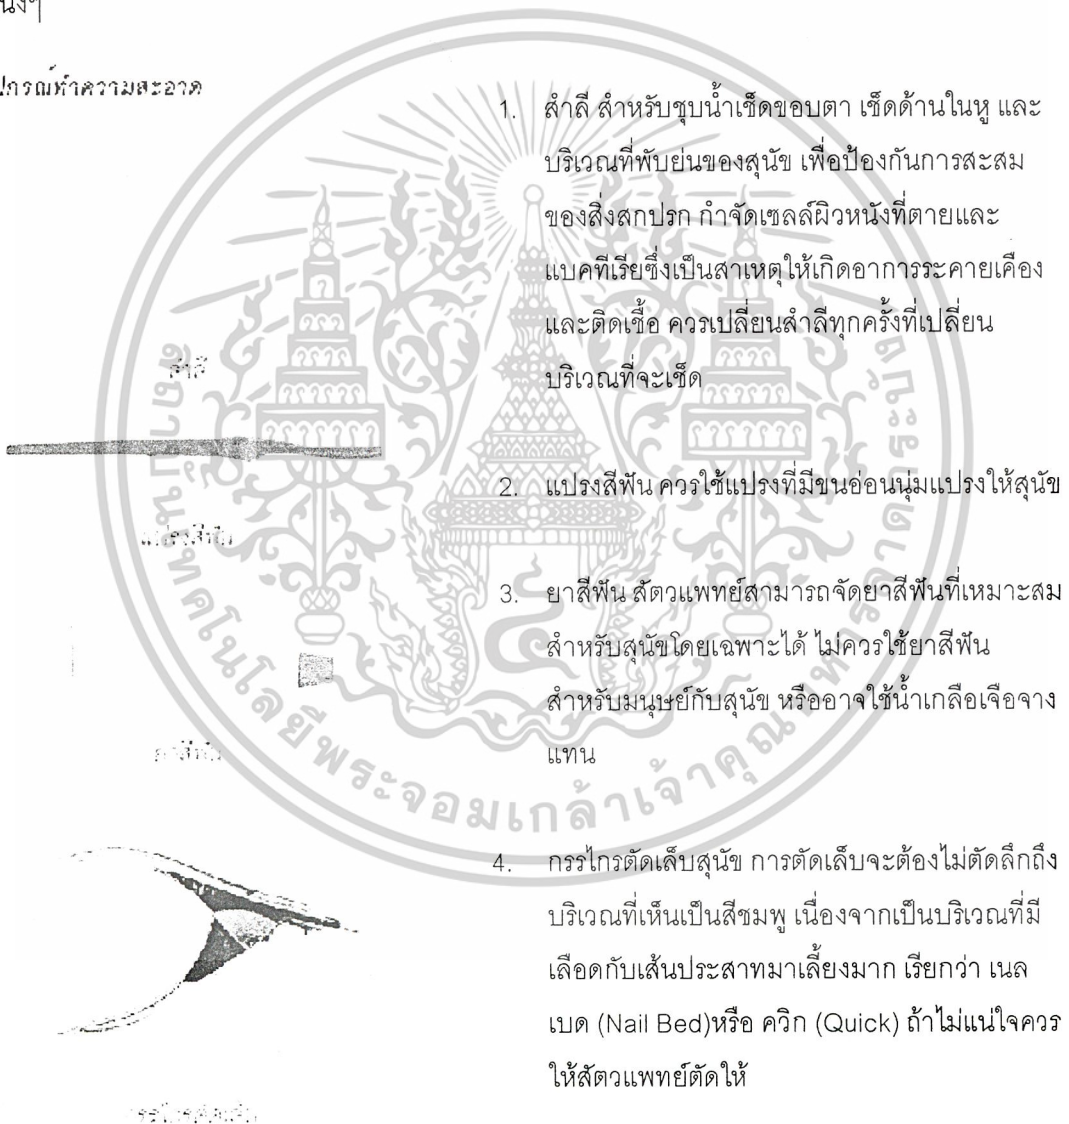 ปกรณ์ทำความสะอาด
1. สำลี สำหรับชุบน้ำเช็ดขอบตา เช็ดด้านในหู และ
บริเวณที่พับย่นของสุนัข เพื่อป้องกันการสะสม
ของสิ่งสกปรก กำจัดเซลล์ผิวหนังที่ตายและ
แบคทีเรียซึ่งเป็นสาเหตุให้เกิดอาการระคายเคือง
และติดเชื้อ ควรเปลี่ยนสำลีทุกครั้งที่เปลี่ยน
บริเวณที่จะเช็ด
สำลี
2. แปรงสีฟัน ควรใช้แปรงที่มีขนอ่อนนุ่มแปรงให้สุนัข
แปรงสีฟัน
3. ยาสีฟัน สัตวแพทย์สามารถจัดยาสีฟันที่เหมาะสม
สำหรับสุนัขโดยเฉพาะได้ ไม่ควรใช้ยาสีฟัน
สำหรับมนุษย์กับสุนัข หรืออาจใช้น้ำเกลือเจือจาง
แทน
ยาสีฟัน
4. กรรไกรตัดเล็บสุนัข การตัดเล็บจะต้องไม่ตัดลึกถึง
บริเวณที่เห็นเป็นสีชมพู เนื่องจากเป็นบริเวณที่มี
เลือดกับเส้นประสาทมาเลี้ยงมาก เรียกว่า เนล
เบด (Nail Bed)หรือ ควิก (Quick) ถ้าไม่แน่ใจควร
ให้สัตวแพทย์ตัดให้
กรรไกรตัดเล็บ
สถาบันเทคโนโลยีพระจอมเกล้าเจ้าคุณทหารลาดกระบัง